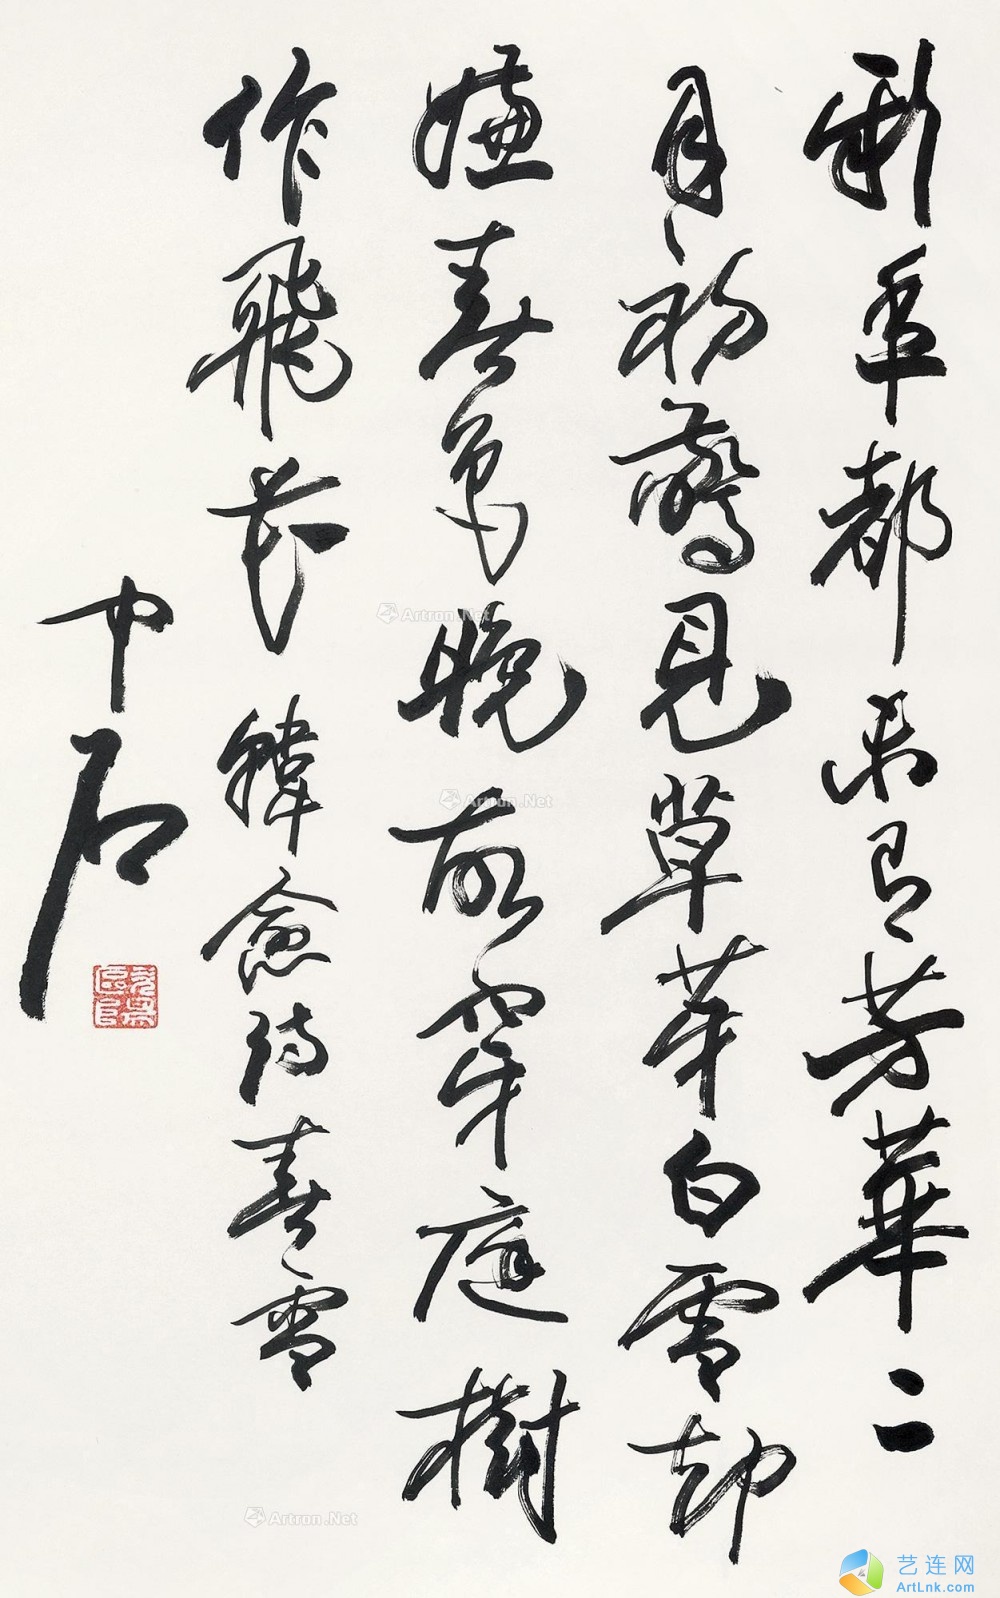 新年都未有芳華二
月初驚見草芽白雪却
嫌春色晚故穿庭樹
作飛花 韓愈詩春雪
中石
Artron.Net
Artron.Net
Artron.Net
艺连网
ArtLnk.com